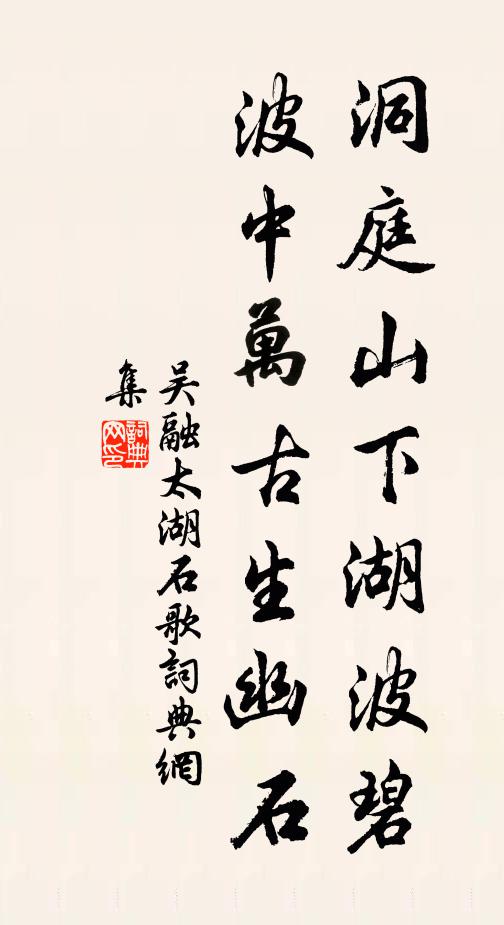 洞庭山下湖波碧
波中萬古生幽石
吳融太湖石歌詞典網
集
詞典
网印